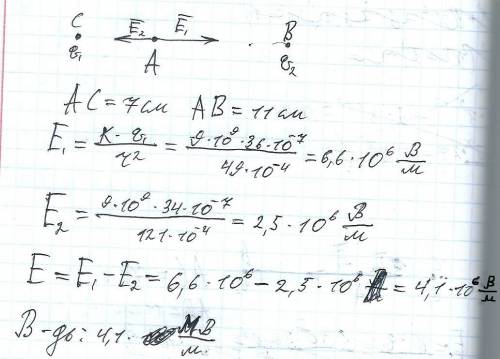 C E₂ E₁ B
q₁ A q₂
AC = 7см AB = 11см
E₁ = K·q₁/r² = 9·10⁹·36·10⁻⁷/49·10⁻⁴ = 6,6·10⁶ В/м
E₂ = 9·10⁹·34·10⁻⁷/121·10⁻⁴ = 2,5·10⁶ В/м
E = E₁ - E₂ = 6,6·10⁶ - 2,5·10⁶ = 4,1·10⁶ В/м
В-дь: 4,1· МВ/м.